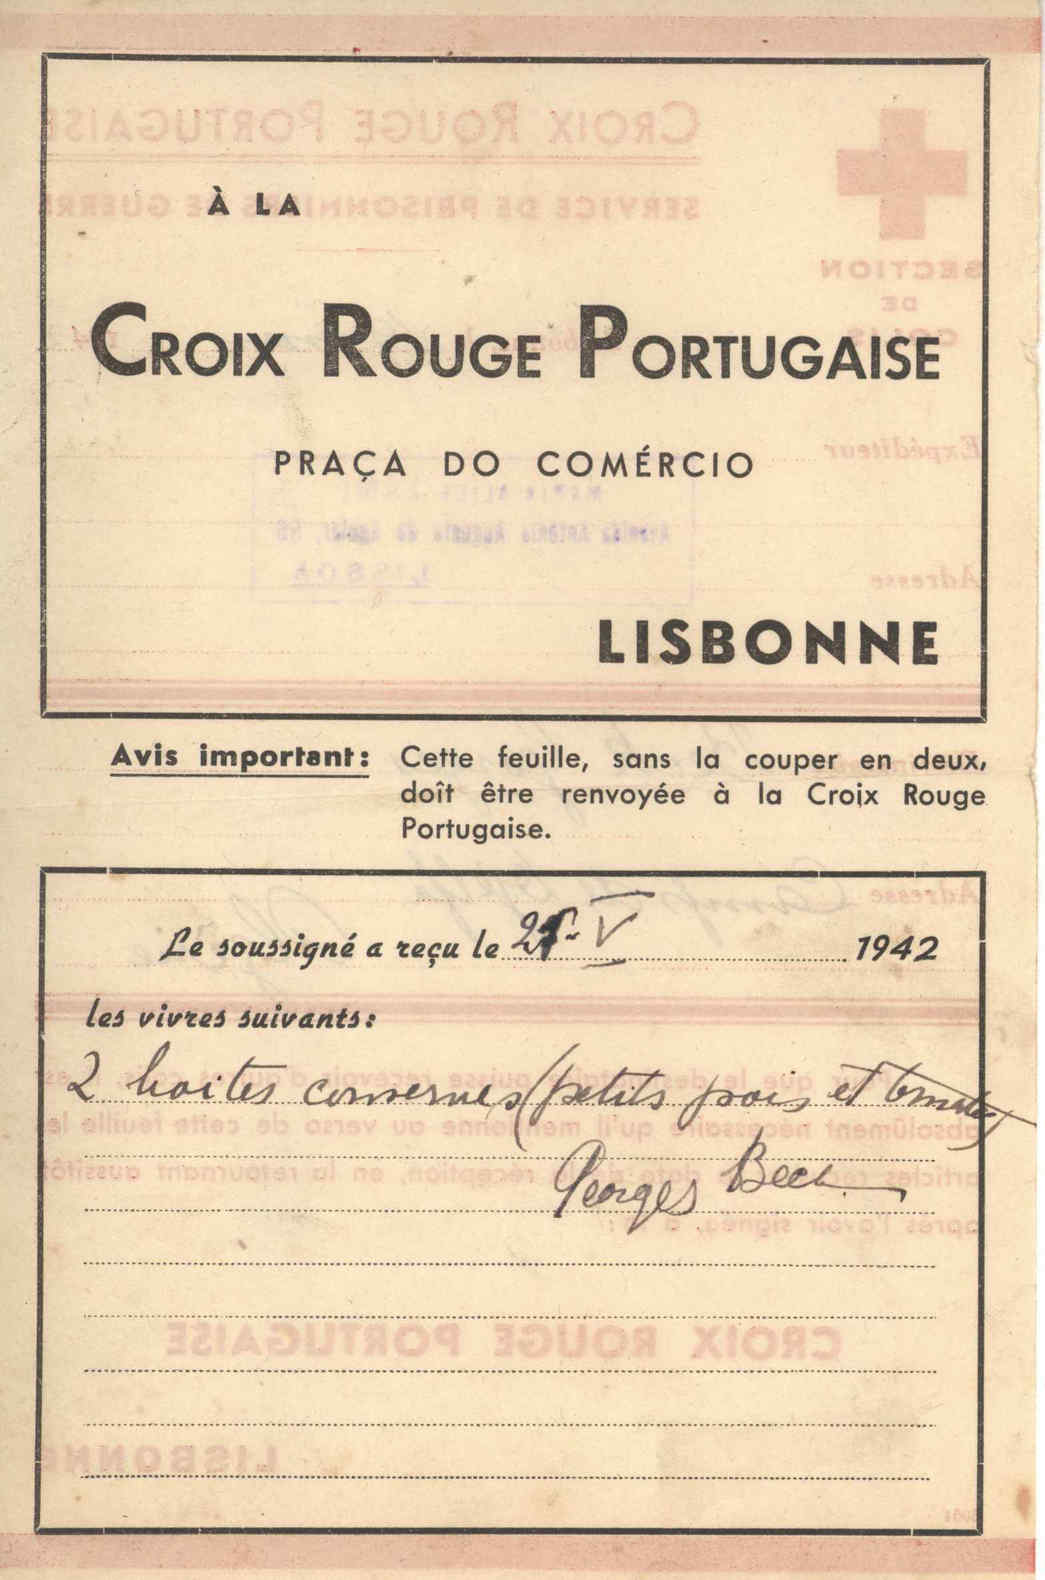 À LA
CROIX ROUGE PORTUGAISE
PRAÇA DO COMÉRCIO
LISBONNE
Avis important: Cette feuille, sans la couper en deux,
doît être renvoyée à la Croix Rouge
Portugaise.
Le soussigné a reçu le V 1942
les vivres suivants:
2 boites conserves (petits pois et tomates)
Georges Bech